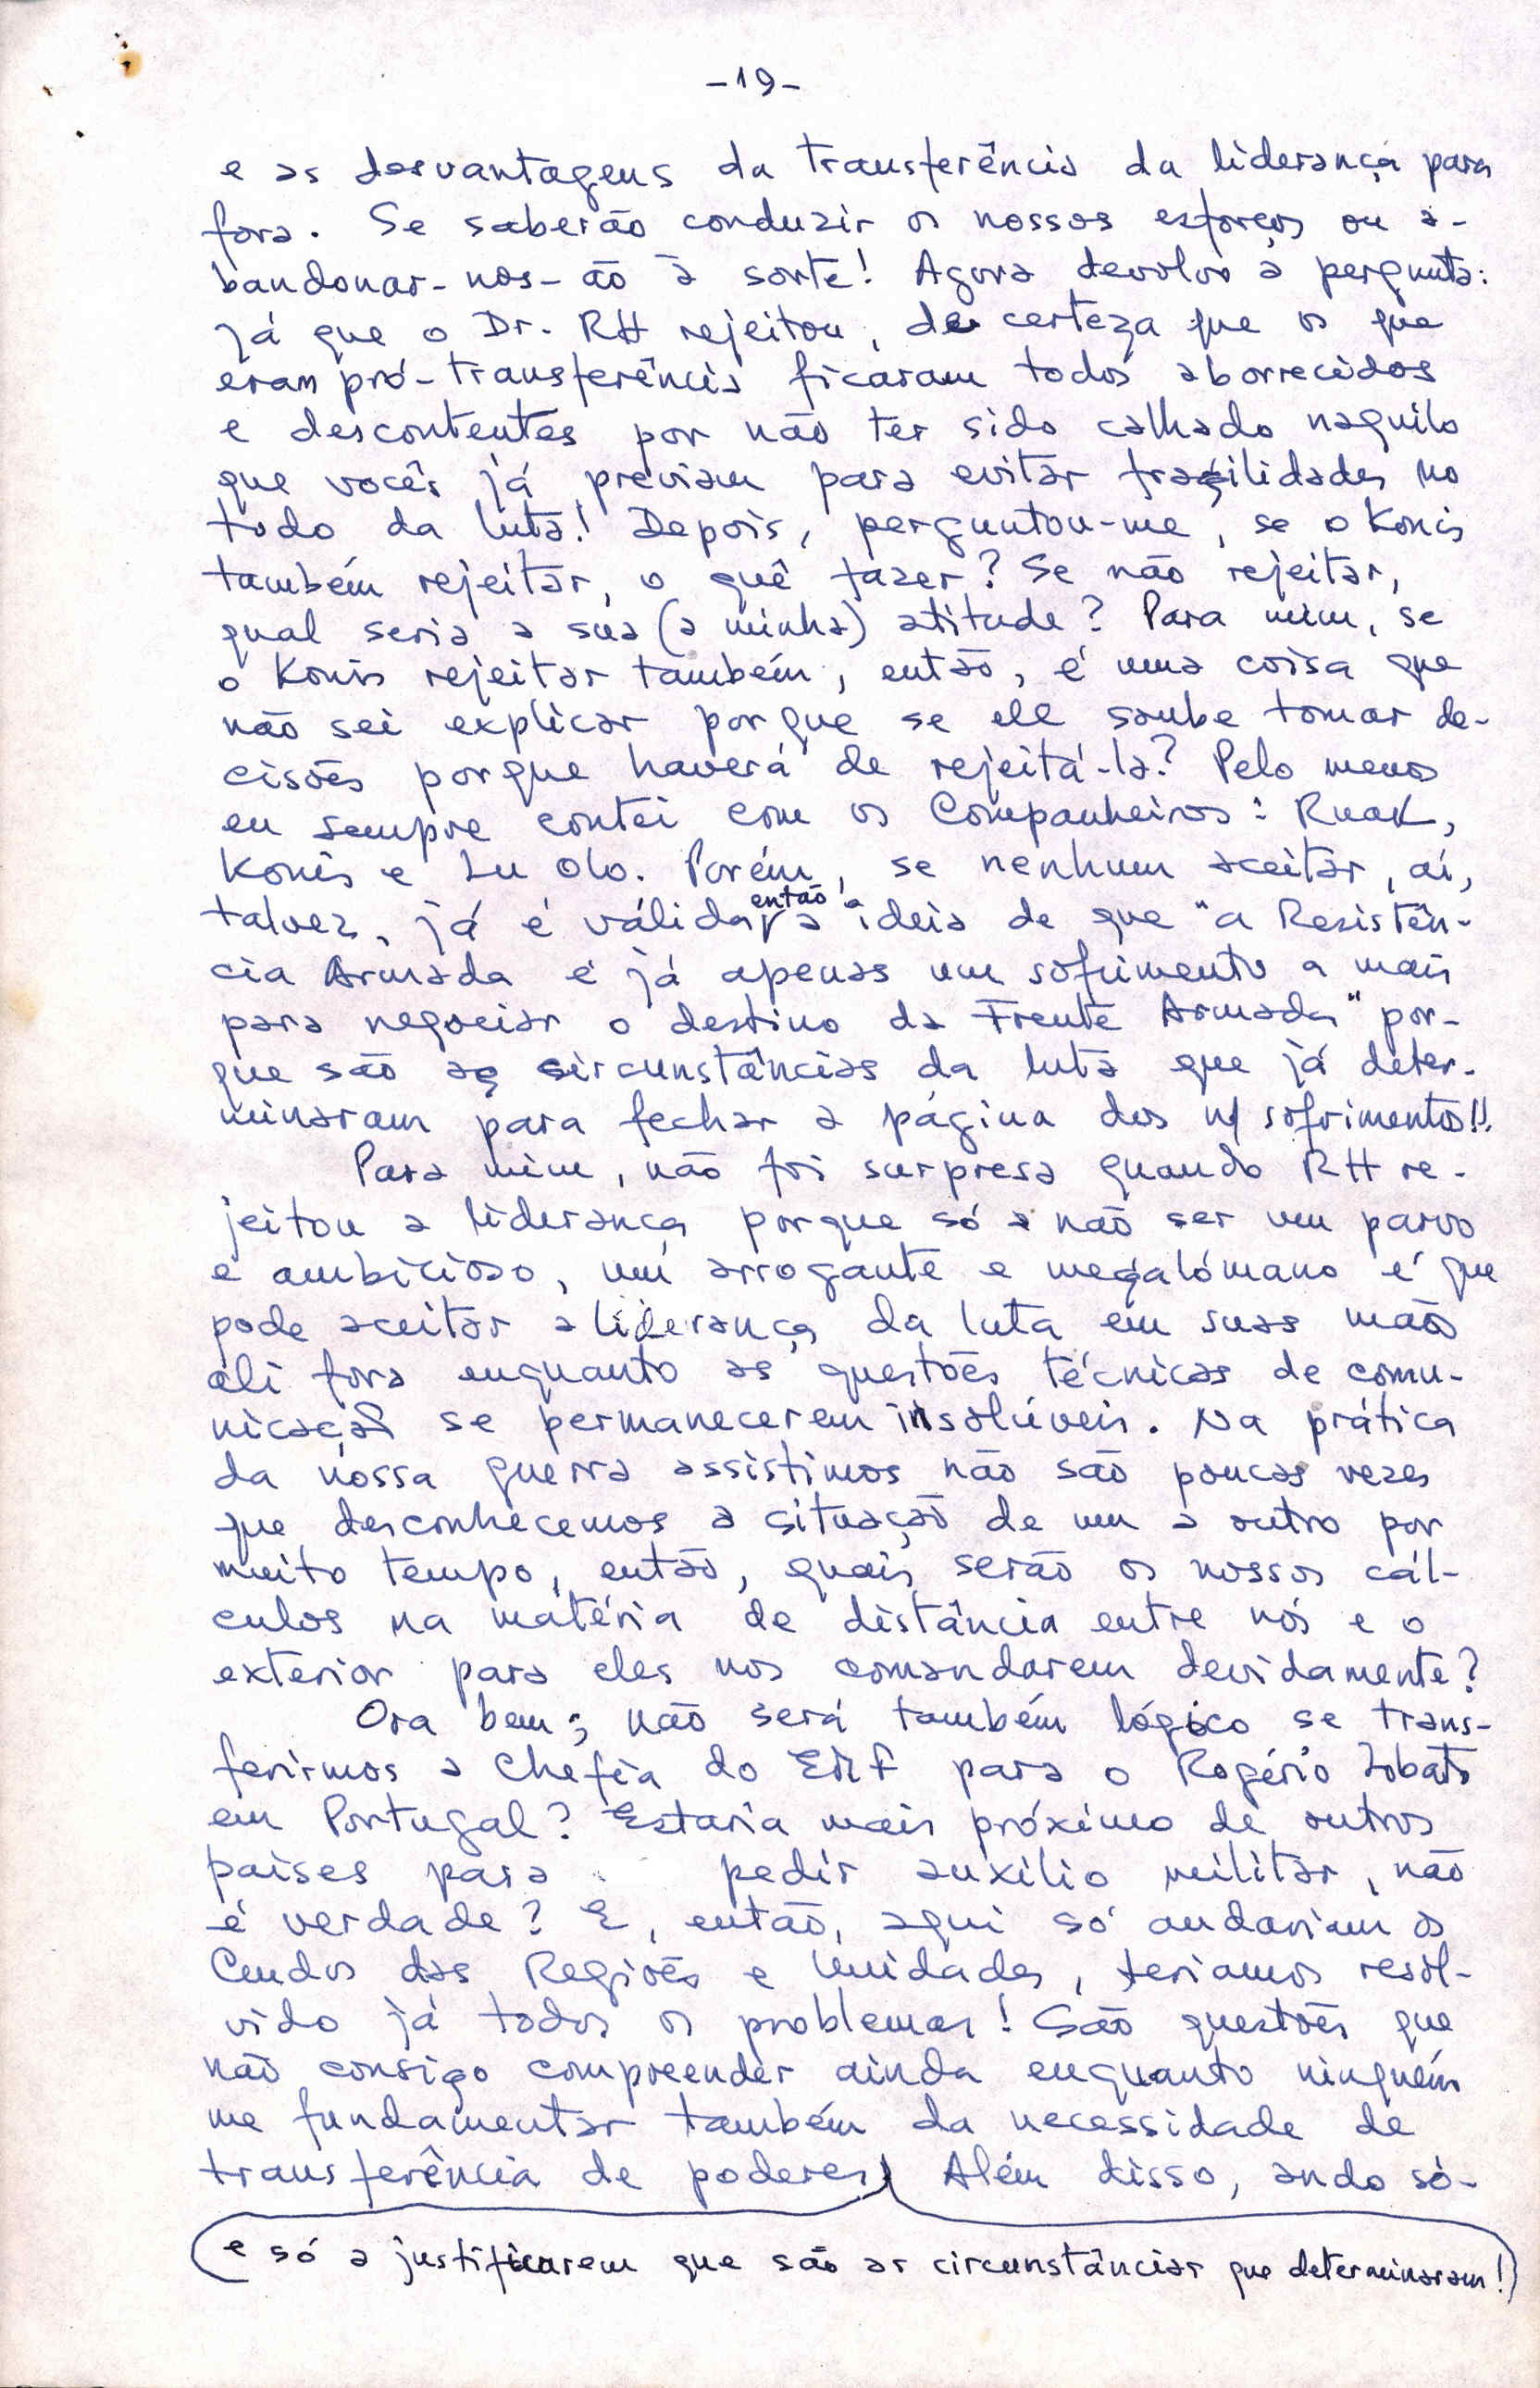 -19-
e as desvantagens da transferência da liderança para
fora. Se saberão conduzir os nossos esforços ou a-
bandonar-nos-ão à sorte! Agora devolvo a pergunta:
Já que o Dr. RH rejeitou, de certeza que os que
eram pró-transferência ficaram todos aborrecidos
e descontentes por não ter sido calhado naquilo
que vocês já previam para evitar fragilidades no
todo da luta! Depois, perguntou-me, se o Konis
também rejeitar, o quê fazer? Se não rejeitar,
qual seria a sua (a minha) atitude? Para mim, se
o Konis rejeitar também, então, é uma coisa que
não sei explicar porque se ele soube tomar de-
cisões porque haverá de rejeitá-la? Pelo menos
eu sempre contei com os Companheiros: Ruak,
Konis e Lu Olo. Porém, se nenhum aceitar, aí,
talvez, já é válida então a ideia de que "a Resistên-
cia Armada é já apenas um sofrimento a mais
para negociar o destino da Frente Armada" por-
que são as circunstâncias da luta que já deter-
minaram para fechar a página dos n/ sofrimentos!!
Para mim, não foi surpresa quando RH re-
jeitou a liderança porque só a não ser um parvo
e ambicioso, um arrogante e megalómano é que
pode aceitar a liderança da luta em suas mãos
ali fora enquanto as questões técnicas de comu-
nicação se permanecerem insolúveis. Na prática
da nossa guerra assistimos não são poucas vezes
que desconhecemos a situação de um a outro por
muito tempo, então, quais serão os nossos cál-
culos na matéria de distância entre nós e o
exterior para eles nos comandarem devidamente?
Ora bem; não será também lógico se trans-
ferirmos a Chefia do EMF para o Rogério Lobato
em Portugal? Estaria mais próximo de outros
países para pedir auxílio militar, não
é verdade? E, então, aqui só andariam os
Cmdos das Regiões e Unidades, teriamos resol-
vido já todos os problemas! São questões que
não consigo compreender ainda enquanto ninguém
me fundamentar também da necessidade de
transferência de poderes Além disso, ando só-
e só a justificarem que são as circunstâncias que determinaram!